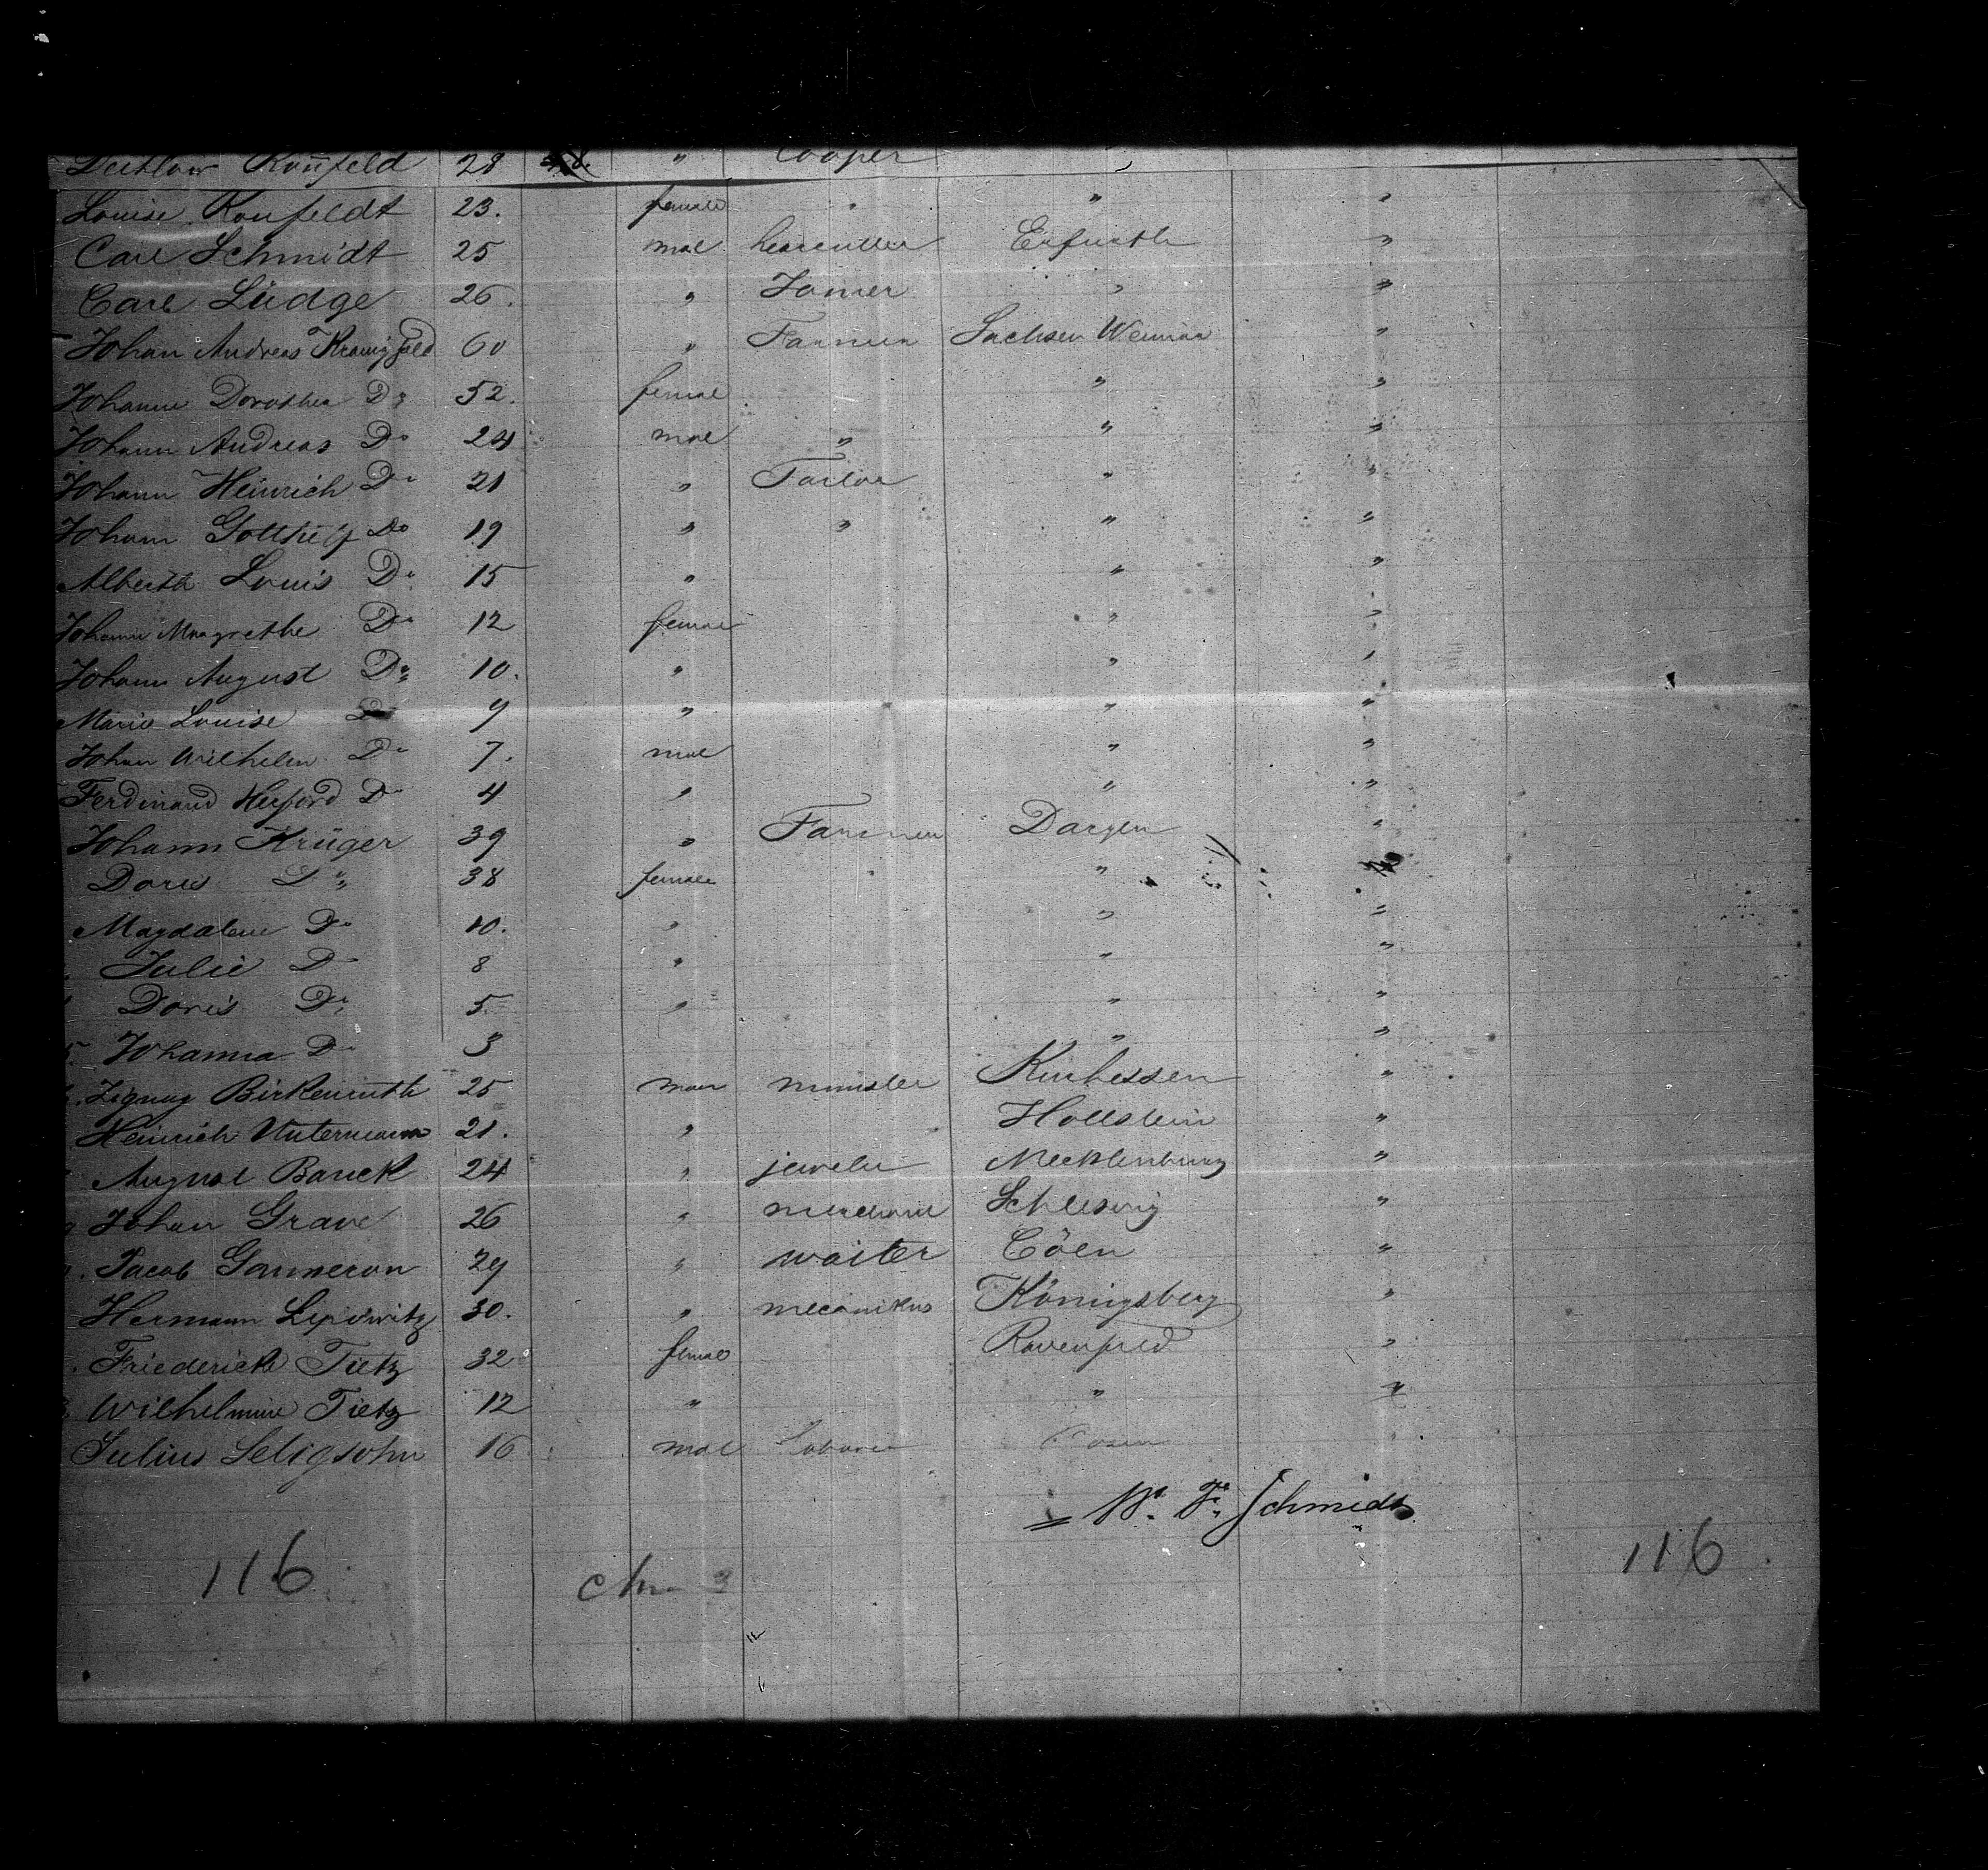 Detlow Ronfeld 28 " Cooper "
Louise Ronfeldt 23. female " " "
Carl Schmidt 25 mal Erfurth "
Carl Lüdge 26. " " "
Johan Andreas Kranigfeld 60 " Farmer Sachsen Weimar "
Johanne Dorothea Do 52. femal " "
Johann Andreas Do 24 mal " " "
Johann Heinrich Do 21 " Tailor " "
Johann Do 19 " " " "
Alberth Louis Do 15 " " "
Johanne Do 12 femal " "
Johann August Do 10. " " "
Marie Louise Do 9 " " "
Johan Wilhelm Do 7. mal " "
Ferdinand Do 4 " " "
Johann Krüger 39 " Farmer Dargen "
Doris Do 38 female "
Magdalene Do 10. " " "
Julie Do 8 " " "
Doris Do 5 " " "
Johanna Do 3 " "
Birkenruth 25 Kurhessen "
Heinrich Untermann 21. " Hollstein "
August Banck 24 " jeweler Mecklenburg "
Johan Grave 26 " Schleswig "
Jacob 29 " waiter Cöln "
Hermann Lipowitz 30. " mecanikus Königsberg "
Friederich Tietz 32 femal "
Wilhelmine Tietz 12 " " "
Julius Seligsohn 16 mal
W. F. Schmidt
116 116